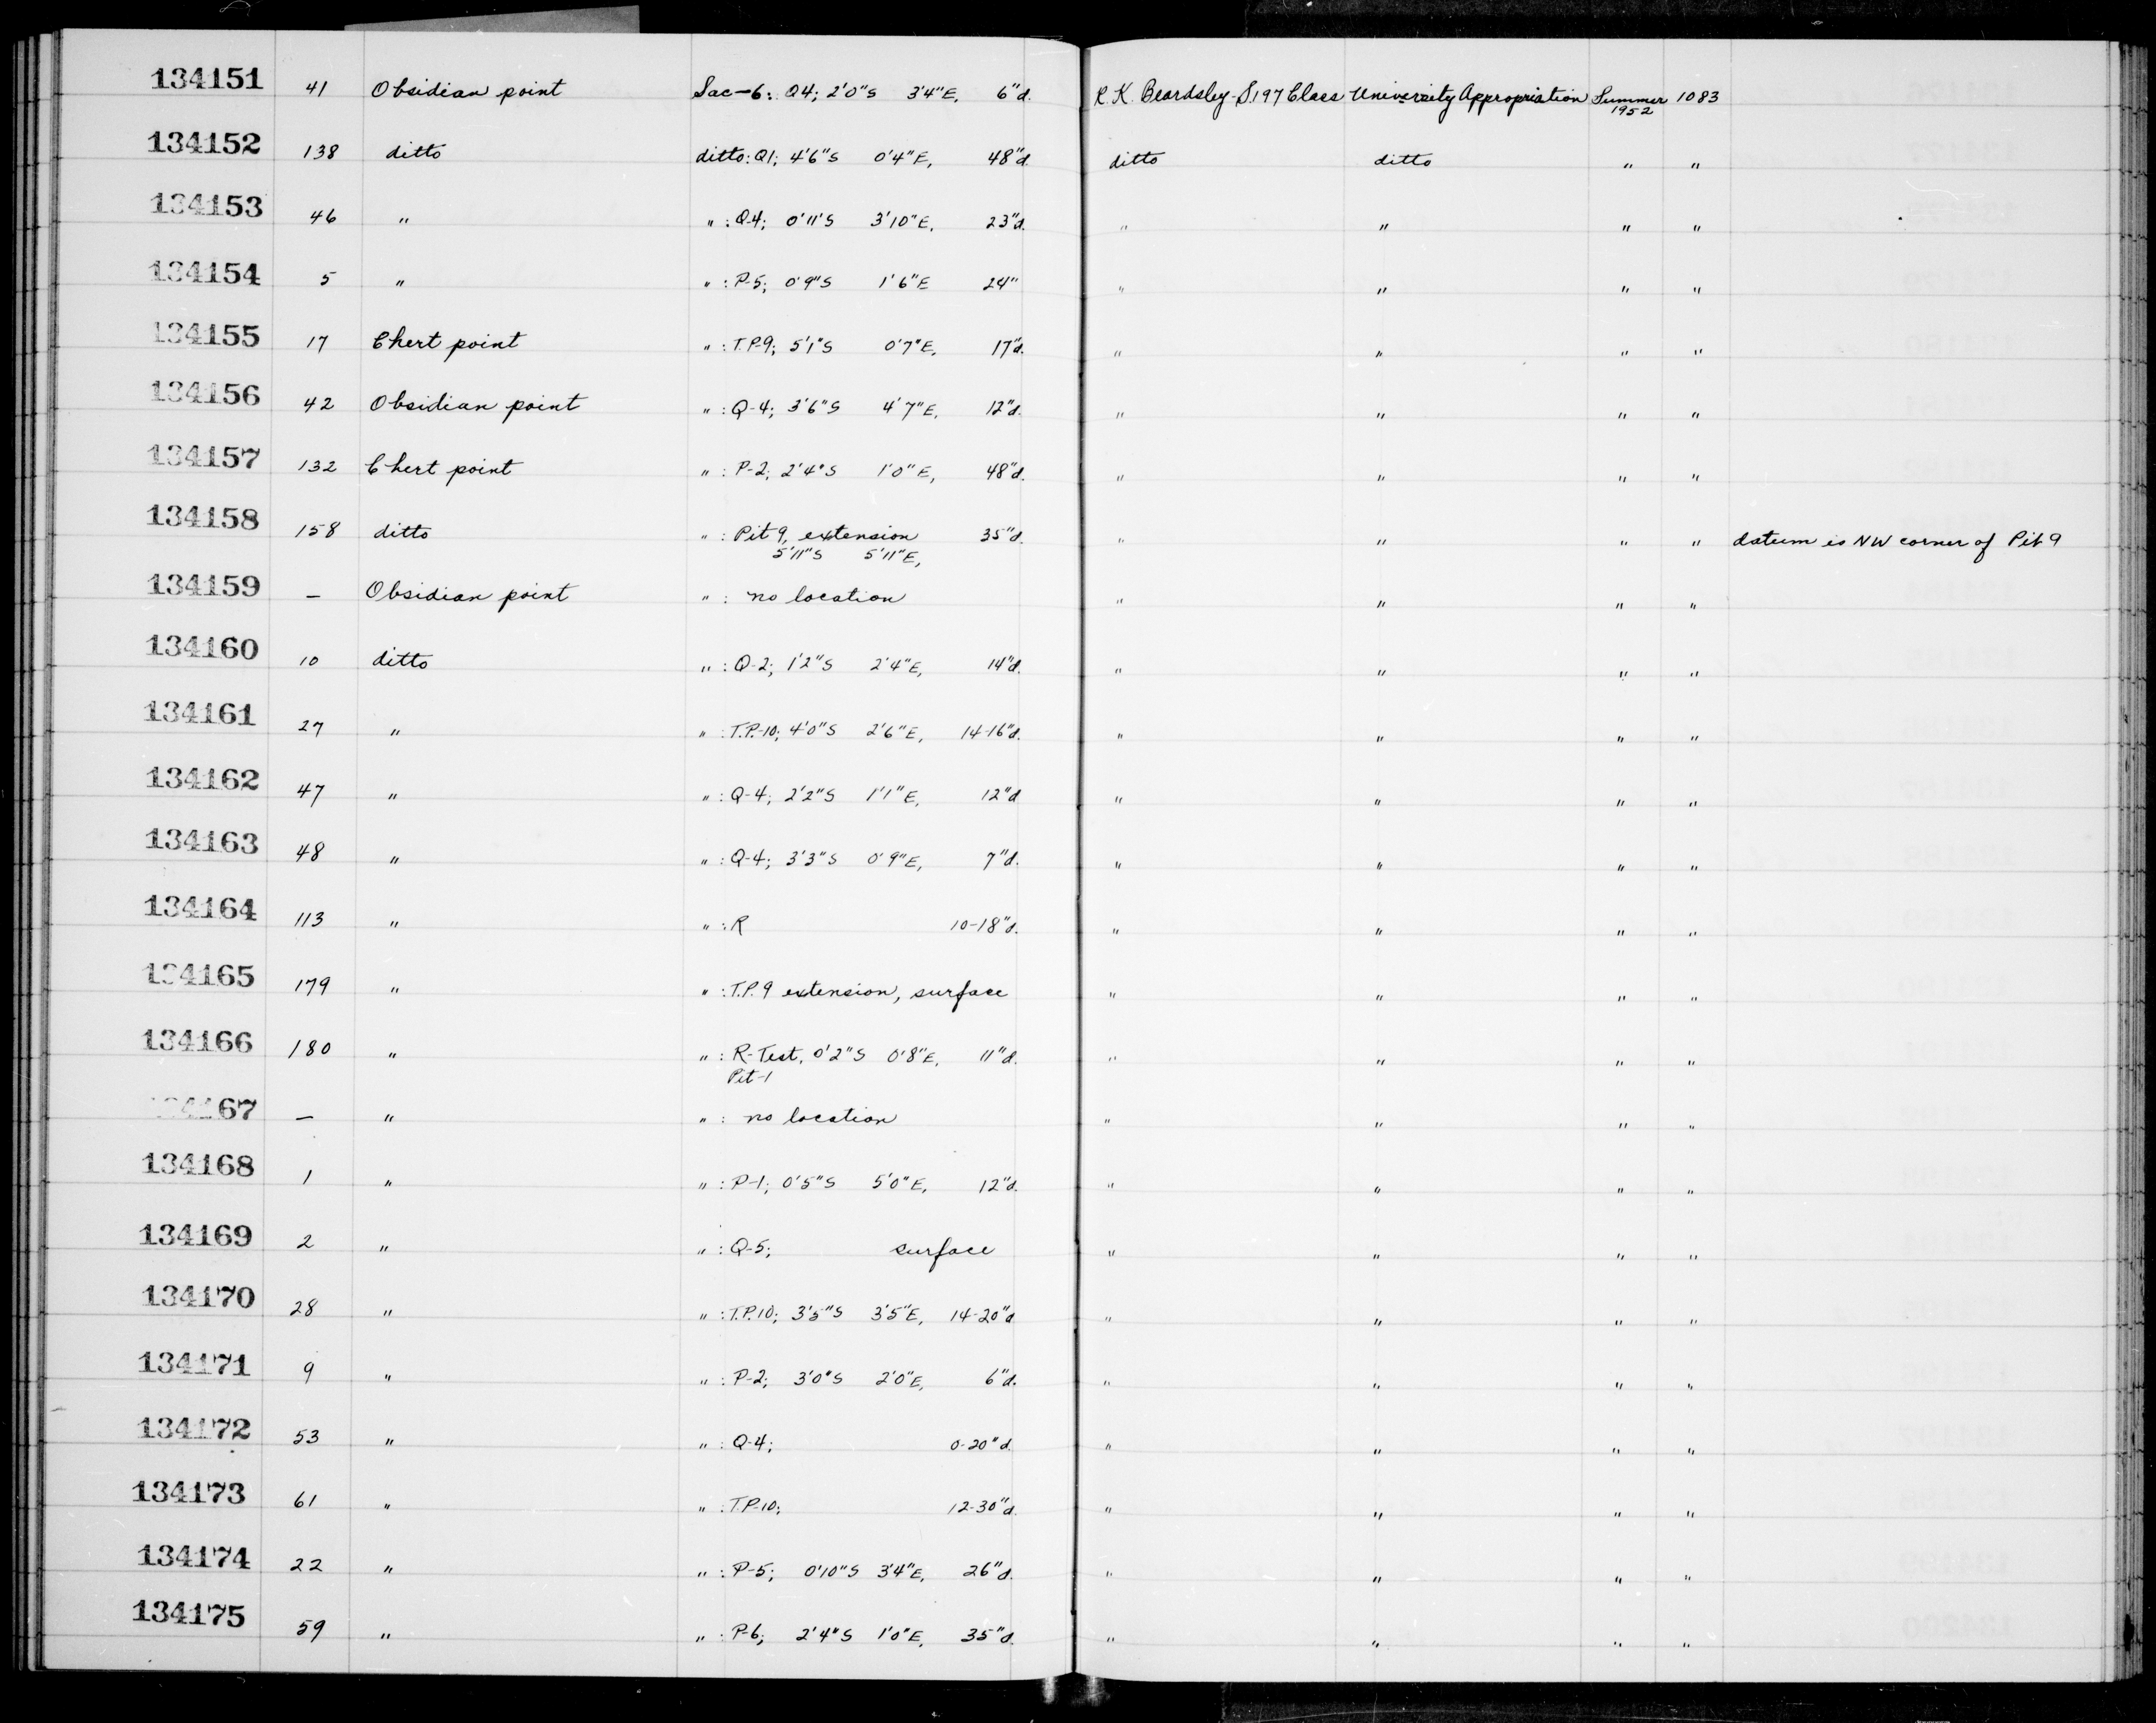 134151 41 Obsidian point Sac-6: Q4; 2'0"S 3'4"E, 6"d. R.K. Beardsley-S197 Class University Appropriation Summer 1952 1083
134152 138 ditto ditto: Q1; 4'6"S 0'4"E, 48"d. ditto ditto " "
134153 46 " " : Q-4; 0'11'S 3'10"E, 23"d. " " " "
134154 5 " " : P-5; 0'9"S 1'6"E 24" " " " "
134155 17 Chert point " : T.P-9; 5'1"S 0'7"E, 17"d. " " " "
134156 42 Obsidian point " : Q-4; 3'6"S 4'7"E, 12"d. " " " "
134157 132 Chert point " : P-2; 2'4"S 1'0"E, 48"d. " " " "
134158 158 ditto " : Pit 9, extension 35"d. " " " " datum is NW corner of Pit 9
5'11"S 5'11"E,
134159 — Obsidian point " : no location " " " "
134160 10 ditto " : Q-2; 1'2"S 2'4"E, 14"d. " " " "
134161 27 " " : T.P.-10; 4'0"S 2'6"E, 14-16"d. " " " "
134162 47 " " : Q-4; 2'2"S 1'1"E, 12"d " " " "
134163 48 " " : Q-4; 3'3"S 0'9"E, 7"d. " " " "
134164 113 " " : R 10-18"d. " " " "
134165 179 " " : T.P. 9 extension, surface " " " "
134166 180 " " : R-Test, 0'2"S 0'8"E, 11"d. " " " "
Pit-1
134167 — " " : no location " " " "
134168 1 " " : P-1; 0'5"S 5'0"E, 12"d. " " " "
134169 2 " " : Q-5; surface " " " "
134170 28 " " : T.P.10; 3'5"S 3'5"E, 14-20"d " " " "
134171 9 " " : P-2; 3'0"S 2'0"E, 6"d. " " " "
134172 53 " " : Q-4; 0-20"d. " " " "
134173 61 " " : T.P-10; 12-30"d. " " " "
134174 22 " " : P-5; 0'10"S 3'4"E, 26"d. " " " "
134175 59 " " : P-6; 2'4"S 1'0"E, 35"d. " " " "